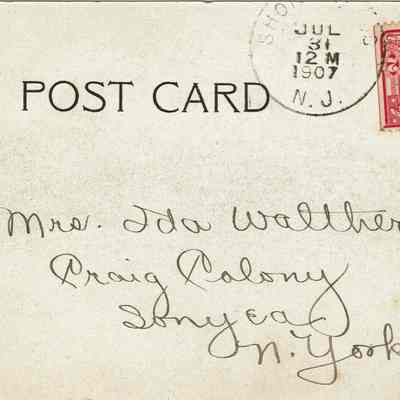 JUL
31
12 M
1907
N. J.
POST CARD
Mrs. Ida Walther
Craig Colony
Sonyea
N. York